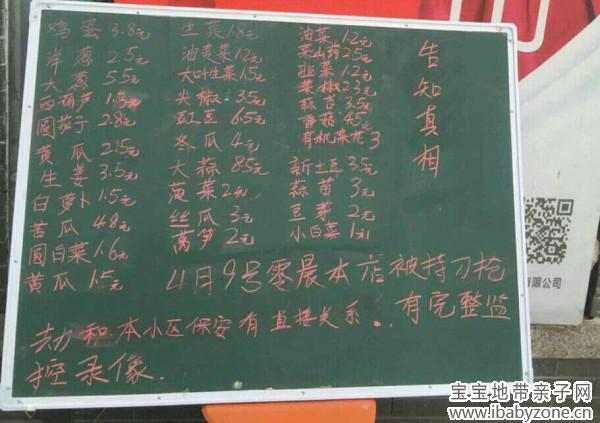 鸡蛋 3.8元
洋葱 2.5元
大葱 5.5元
西葫芦 1.3元
圆茄子 2.8元
黄瓜 2.5元
生姜 3.5元
白萝卜 1.5元
苦瓜 4.8元
圆白菜 1.6元
黄瓜 1.5元
生菜 1.8元
油麦菜 1.2元
大叶生菜 1.5元
尖椒 3.5元
豇豆 6.5元
冬瓜 4元
大蒜 8.5元
菠菜 2元
丝瓜 3元
莴笋 2元
油菜 1.2元
菜山药 2.5元
韭菜 1.2元
菜椒 2.3元
蒜苔 3.5元
4.5元
有机菜花 3
新土豆 3.5元
蒜苗 3元
豆芽 2元
小白菜 1元
告知真相
4月9号零晨本店被持刀抢
劫和本小区保安有直接关系..有完整监
控录像.
有限公司
宝宝地带亲子网
www.ibabyzone.cn